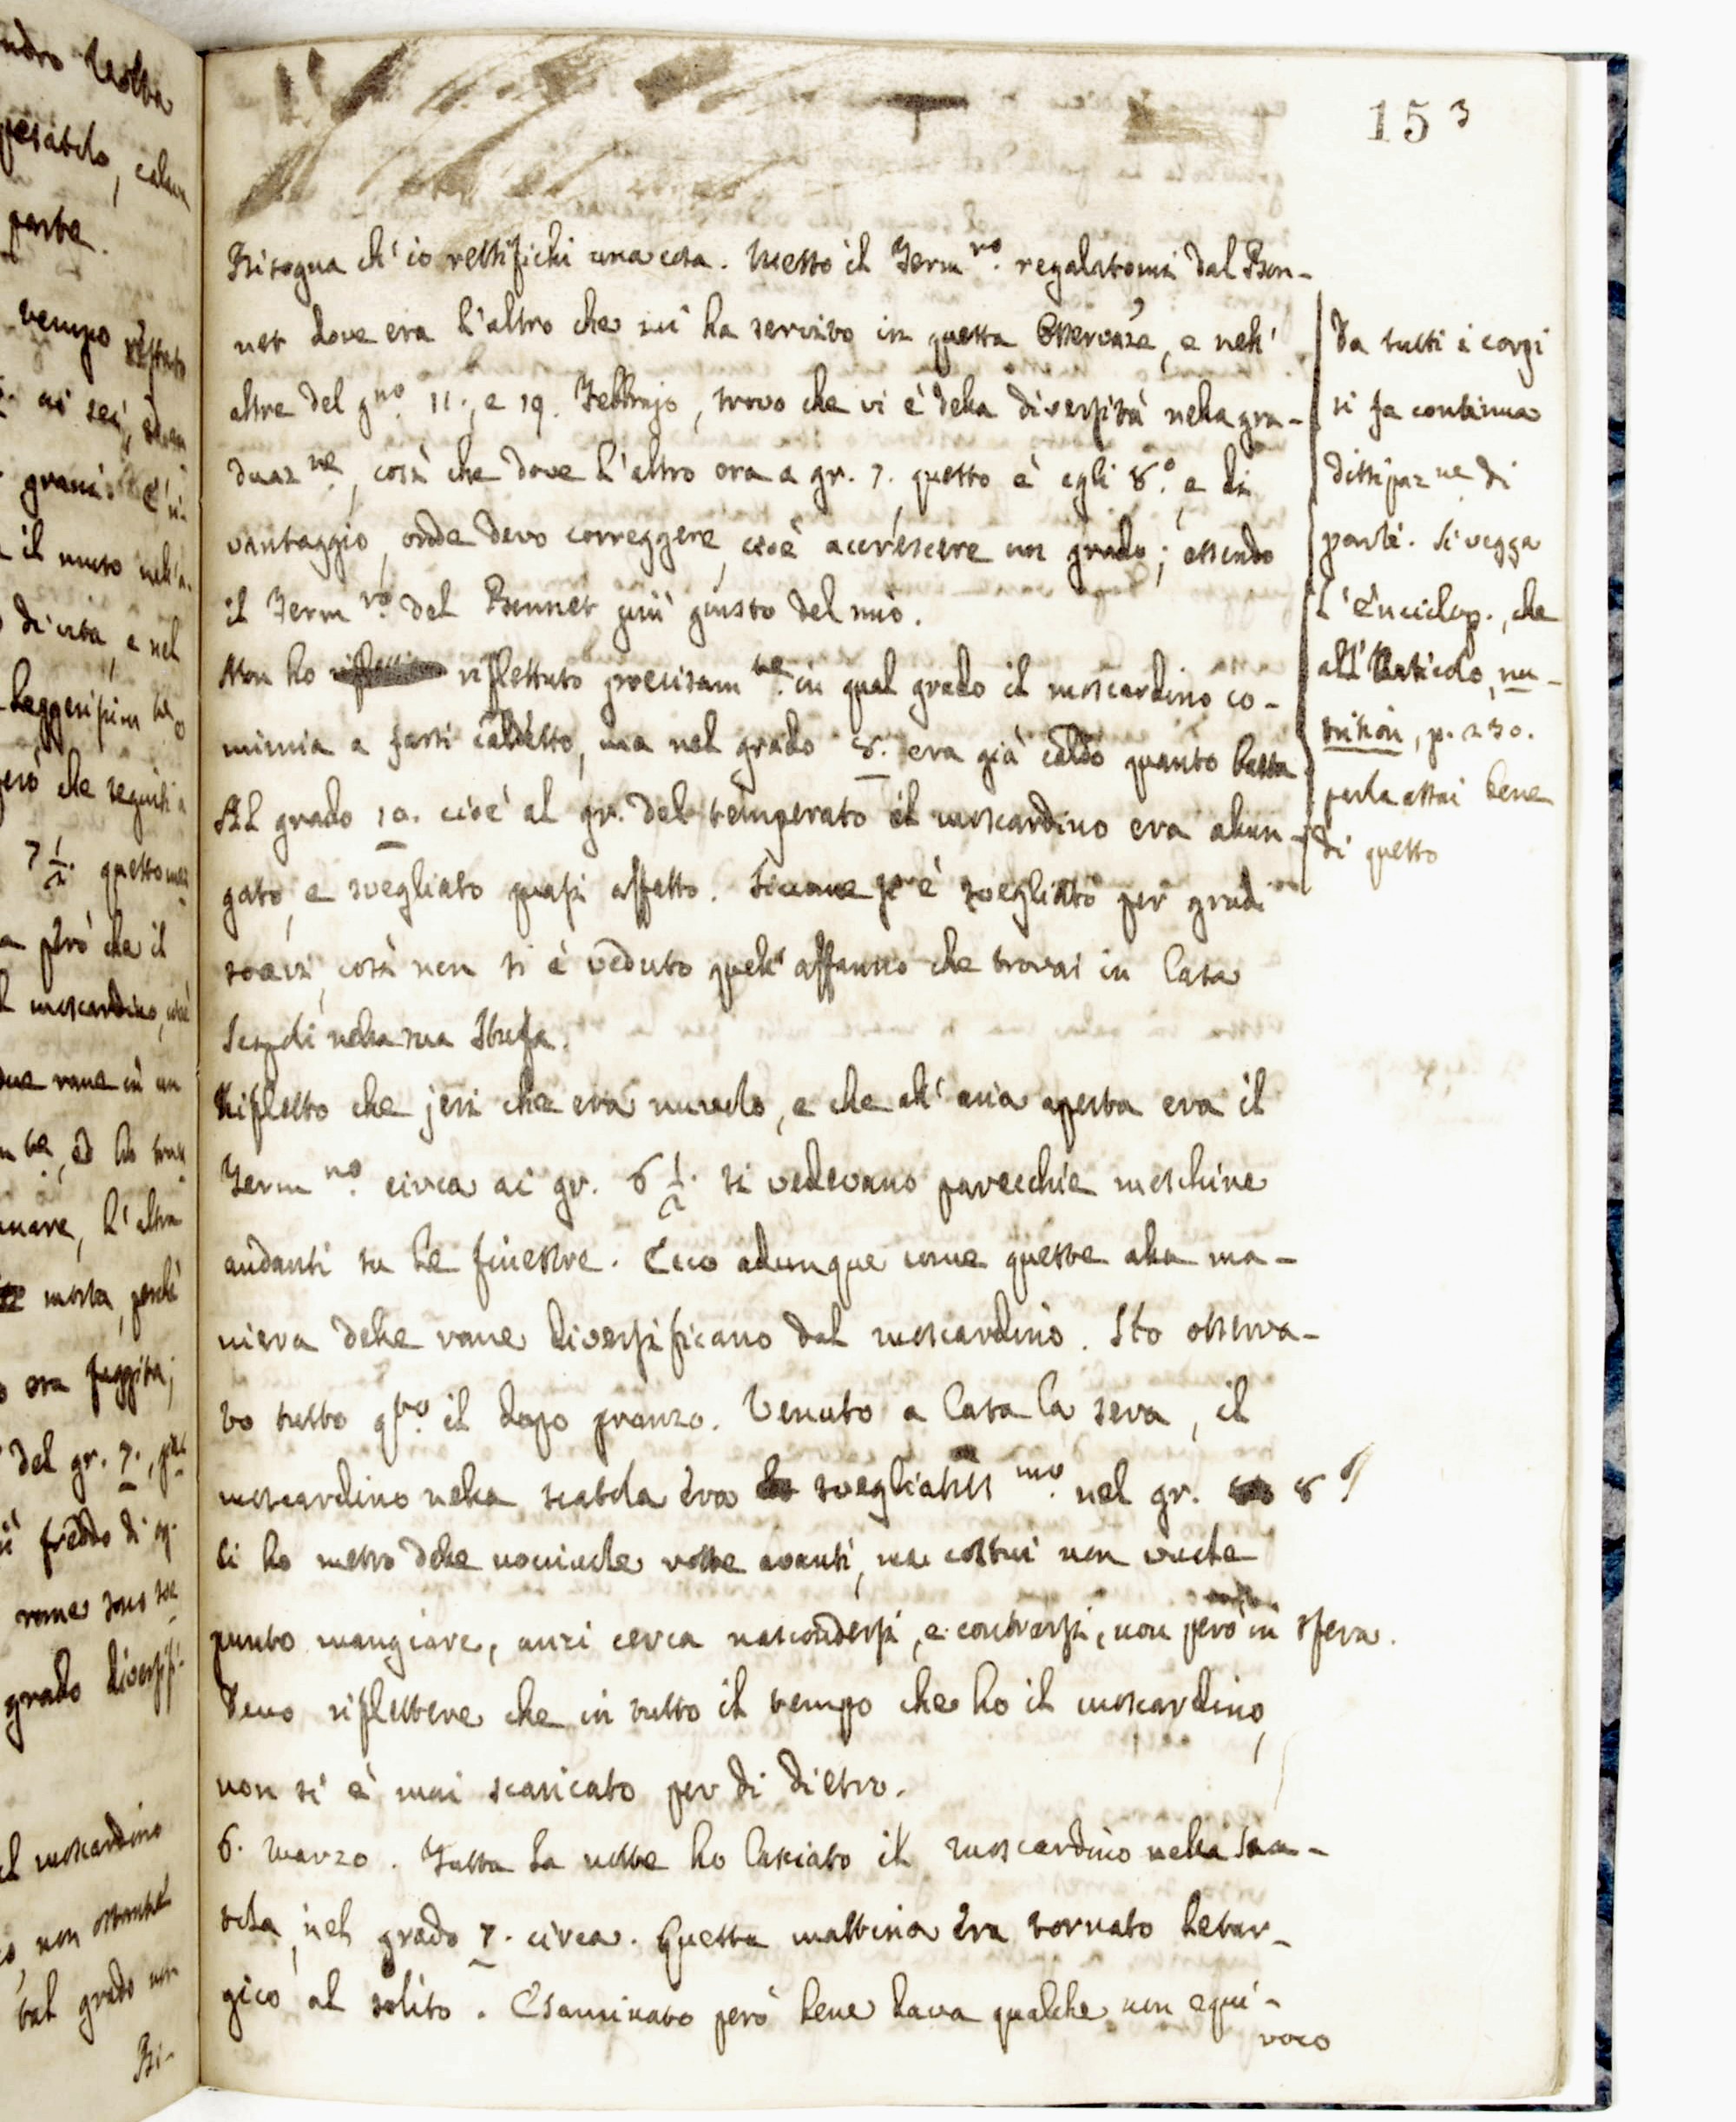 153
Bisogna ch'io rettifichi una cosa. Messo il Term.ro regalatomi dal Bon-
net dove era l'altro che mi ha servito in questa Osservaz.e, e nell'
altre del g.no 11., e 19. Febbrajo, trovo che vi è della diversità nella gra-
duaz.ne, così che dove l'altro era a gr. 7. questo è egli 8.°, e di
vantaggio, onde devo correggere, cioè accrescere un grado; essendo
il Term.ro del Bonnet più giusto del mio.
Non ho riflettuto precisam.te in qual grado il moscardino co-
mincia a farsi caldetto, ma nel grado 8. era già caldo quanto basta
Al grado 10. cioè al gr. del temperato il moscardino era allun-
gato, e svegliato quasi affatto. Siccome s'è svegliato per gradi
soavi, così non si è veduto quell'affanno che trovai in Casa
Scopoli nella sua Stufa.
Rifletto che jeri che era nuvolo, e che all'aria aperta era il
Term.ro circa ai gr. 6 1/2. si vedevano parecchie moschine
andanti su le finestre. Ecco adunque come queste alla ma-
niera delle rane diversificano dal moscardino. Sto osserva-
to tutto q.to il dopo pranzo. Venuto a Casa la sera, il
moscardino nella scatola era svegliatiss.mo nel gr. 8
li ho messo delle nocciuole rotte avanti, ma costui non vuole
punto mangiare, anzi cerca nascondersi, e contraersi, non però in sfera.
Devo riflettere che in tutto il tempo che ho il moscardino,
non si è mai scaricato per di dietro.
6. Marzo. Tutta la notte ho lasciato il moscardino nella sca-
tola, nel grado 7. circa. Questa mattina era tornato letar-
gico al solito. Esaminato però bene dava qualche non equi-
voco
Da tutti i corpi
si fa continua
dissipaz.ne di
parti. Si vegga
l'Enciclop., che
all'Articolo, nu-
trition, p. 230.
parla assai bene
di questo